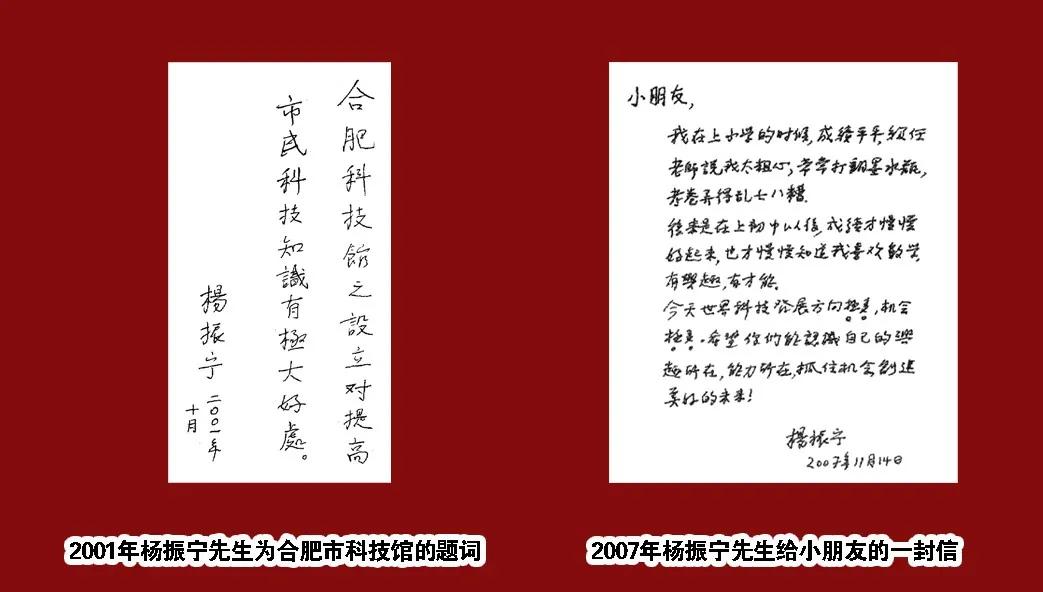 合肥科技館之設立对提高
市民科技知識有極大好處。
楊振宁
二〇〇一年
十月
2001年杨振宁先生为合肥市科技馆的题词
小朋友,
我在上小学的时候,成绩平平,级任
老師說我太粗心,常常打翻墨水瓶,
考卷弄得乱七八糟.
後来是在上初中以後,成绩才慢慢
好起来,也才慢慢知道我喜欢数学,
有興趣,有才能.
今天世界科技發展方向極多,机会
極多.希望你們能認識自己的興
趣所在,能力所在,抓住机会創造
美好的未来!
楊振宁
2007年11月14日
2007年杨振宁先生给小朋友的一封信